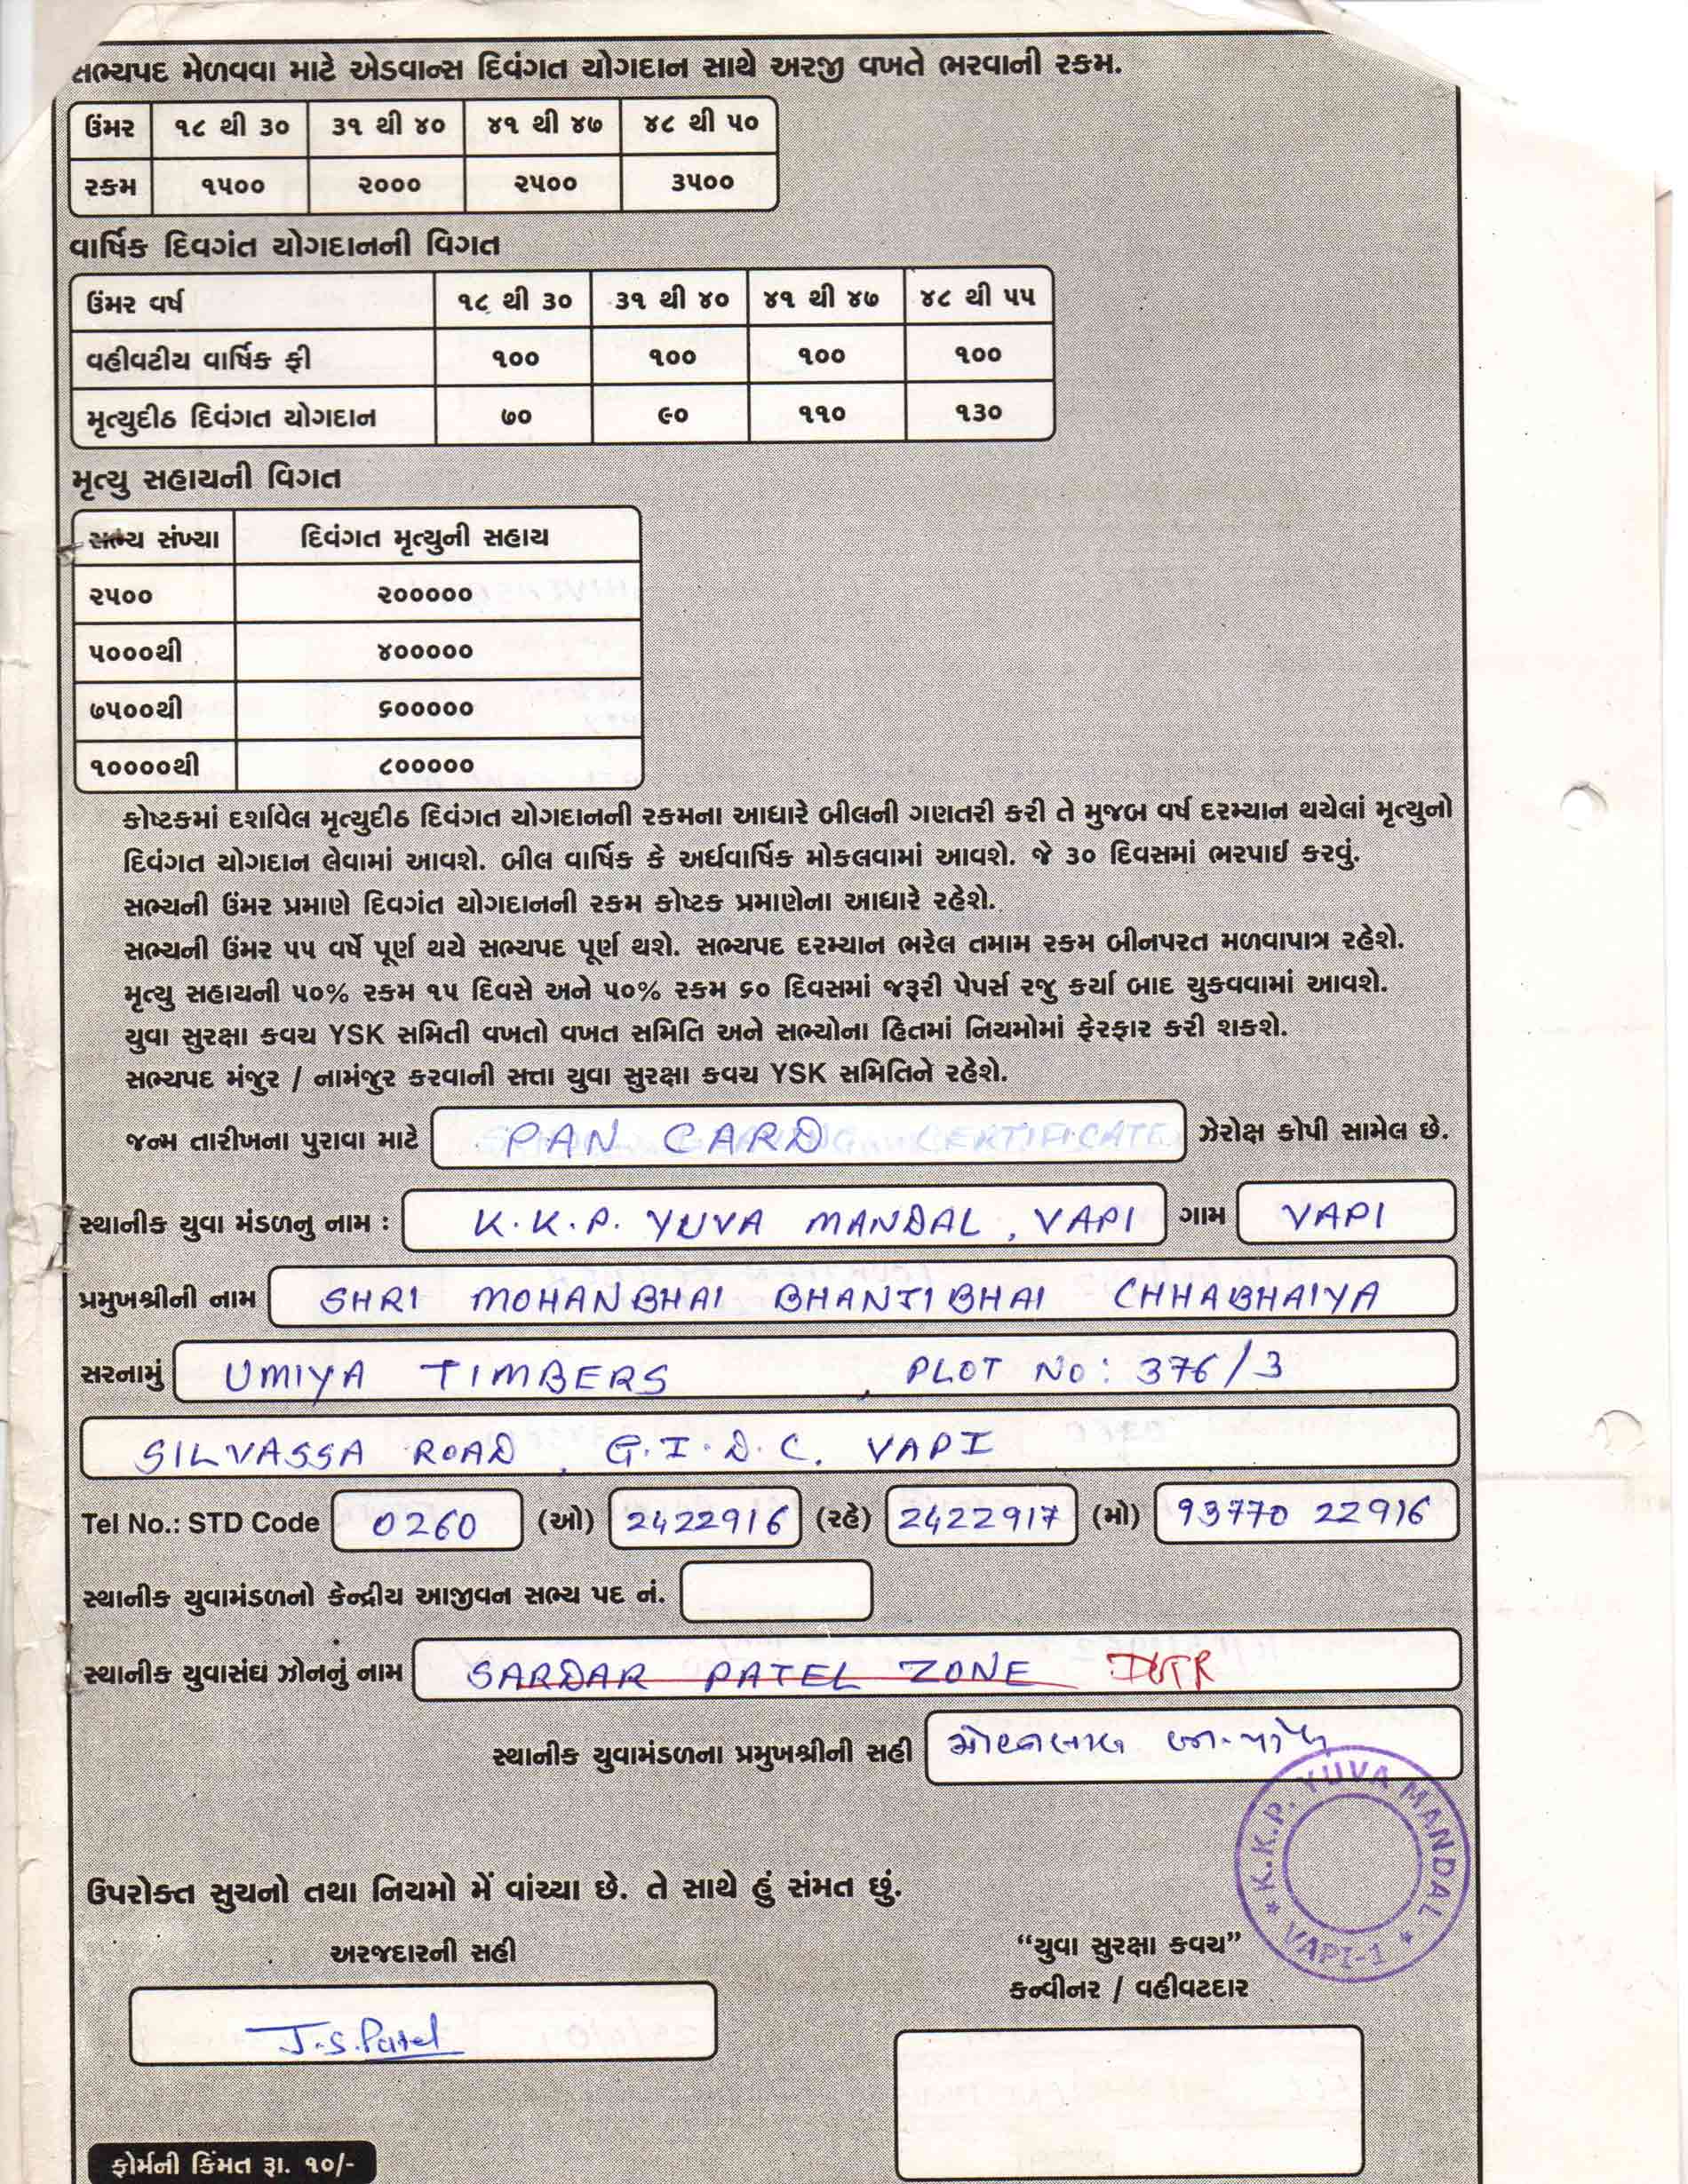 સભ્યપદ મેળવવા માટે એડવાન્સ દિવંગત યોગદાન સાથે અરજી વખતે ભરવાની રકમ.
ઉંમર ૧૮ થી ૩૦ ૩૧ થી ૪૦ ૪૧ થી ૪૭ ૪૮ થી ૫૦
રકમ ૧૫૦૦ ૨૦૦૦ ૨૫૦૦ ૩૫૦૦
વાર્ષિક દિવગંત યોગદાનની વિગત
ઉંમર વર્ષ ૧૮ થી ૩૦ ૩૧ થી ૪૦ ૪૧ થી ૪૭ ૪૮ થી ૫૫
વહીવટીય વાર્ષિક ફી ૧૦૦ ૧૦૦ ૧૦૦ ૧૦૦
મૃત્યુદીઠ દિવંગત યોગદાન ૭૦ ૯૦ ૧૧૦ ૧૩૦
મૃત્યુ સહાયની વિગત
સભ્ય સંખ્યા દિવંગત મૃત્યુની સહાય
૨૫૦૦ ૨૦૦૦૦૦
૫૦૦૦થી ૪૦૦૦૦૦
૭૫૦૦થી ૬૦૦૦૦૦
૧૦૦૦૦થી ૮૦૦૦૦૦
કોષ્ટકમાં દર્શાવેલ મૃત્યુદીઠ દિવંગત યોગદાનની રકમના આધારે બીલની ગણતરી કરી તે મુજબ વર્ષ દરમ્યાન થયેલાં મૃત્યુનો
દિવંગત યોગદાન લેવામાં આવશે. બીલ વાર્ષિક કે અર્ધવાર્ષિક મોકલવામાં આવશે. જે ૩૦ દિવસમાં ભરપાઈ કરવું.
સભ્યની ઉંમર પ્રમાણે દિવગંત યોગદાનની રકમ કોષ્ટક પ્રમાણેના આધારે રહેશે.
સભ્યની ઉંમર ૫૫ વર્ષે પૂર્ણ થયે સભ્યપદ પૂર્ણ થશે. સભ્યપદ દરમ્યાન ભરેલ તમામ રકમ બીનપરત મળવાપાત્ર રહેશે.
મૃત્યુ સહાયની ૫૦% રકમ ૧૫ દિવસે અને ૫૦% રકમ ૬૦ દિવસમાં જરૂરી પેપર્સ રજુ કર્યા બાદ ચુકવવામાં આવશે.
યુવા સુરક્ષા કવચ YSK સમિતી વખતો વખત સમિતિ અને સભ્યોના હિતમાં નિયમોમાં ફેરફાર કરી શકશે.
સભ્યપદ મંજુર / નામંજુર કરવાની સત્તા યુવા સુરક્ષા કવચ YSK સમિતિને રહેશે.
જન્મ તારીખના પુરાવા માટે PAN CARD CERTIFICATE ઝેરોક્ષ કોપી સામેલ છે.
સ્થાનીક યુવા મંડળનુ નામ : K.K.P. YUVA MANDAL, VAPI ગામ VAPI
પ્રમુખશ્રીની નામ SHRI MOHANBHAI BHANJIBHAI CHHABHAIYA
સરનામું UMIYA TIMBERS, PLOT NO: 376/3
SILVASSA ROAD, G.I.D.C. VAPI
Tel No.: STD Code 0260 (ઓ) 2422916 (રહે) 2422917 (મો) 93770 22916
સ્થાનીક યુવામંડળનો કેન્દ્રીય આજીવન સભ્ય પદ નં.
સ્થાનીક યુવાસંઘ ઝોનનું નામ SARDAR PATEL ZONE
સ્થાનીક યુવામંડળના પ્રમુખશ્રીની સહી
K.K.P. YUVA MANDAL * VAPI-1 *
ઉપરોક્ત સુચનો તથા નિયમો મેં વાંચ્યા છે. તે સાથે હું સંમત છું.
અરજદારની સહી
J.S.Patel
“યુવા સુરક્ષા કવચ”
કન્વીનર / વહીવટદાર
ફોર્મની કિંમત રૂા. ૧૦/-